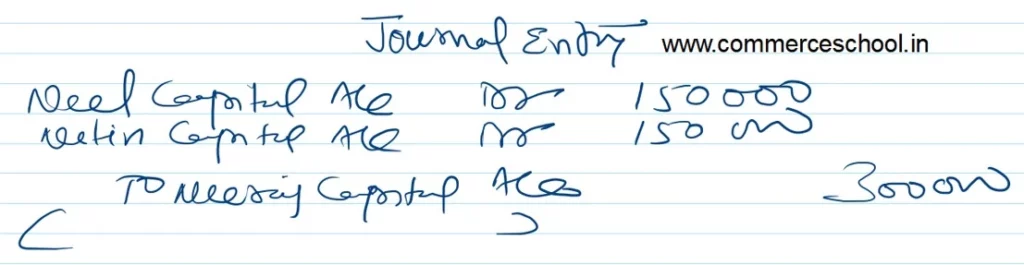 Journal Entry www.commerceschool.in
Neel Capital A/c Dr 150000
Nitin Capital A/c Dr 150000
To Neeraj Capital A/c 300000
( )